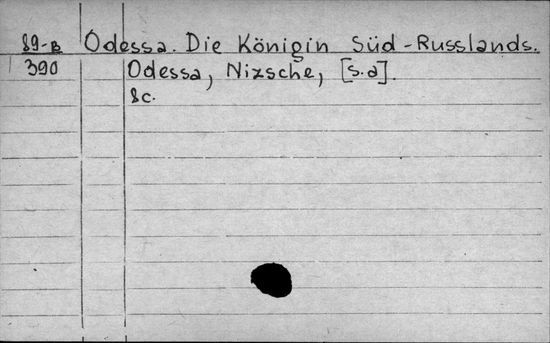 89-B Odessa. Die Königin Süd-Russlands.
390 Odessa, Nizsche, [s.a].
8c.